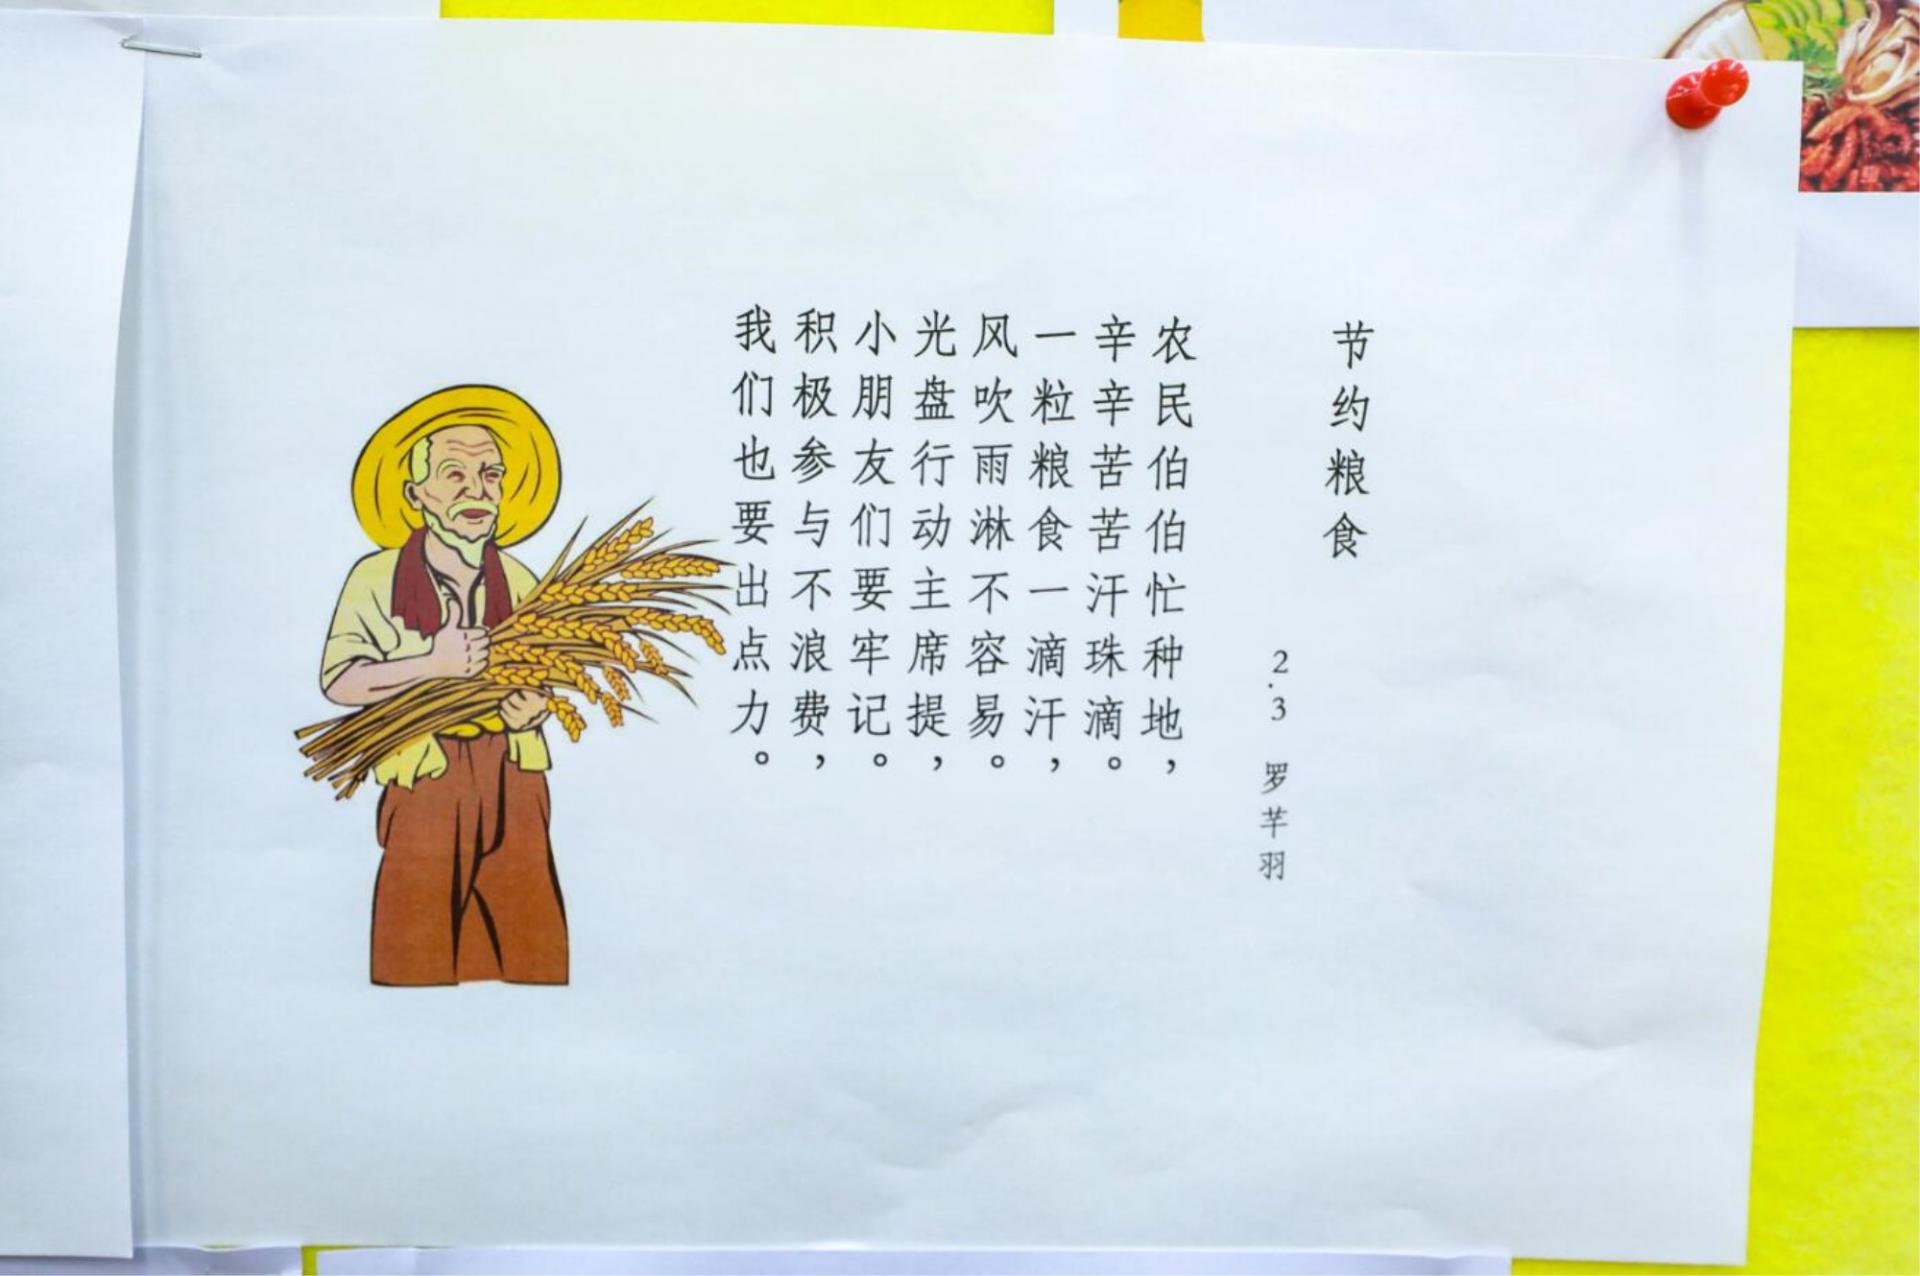 节约粮食
2.3 罗芊羽
农民伯伯忙种地，
辛辛苦苦汗珠滴。
一粒粮食一滴汗，
风吹雨淋不容易。
光盘行动主席提，
小朋友们要牢记。
积极参与不浪费，
我们也要出点力。